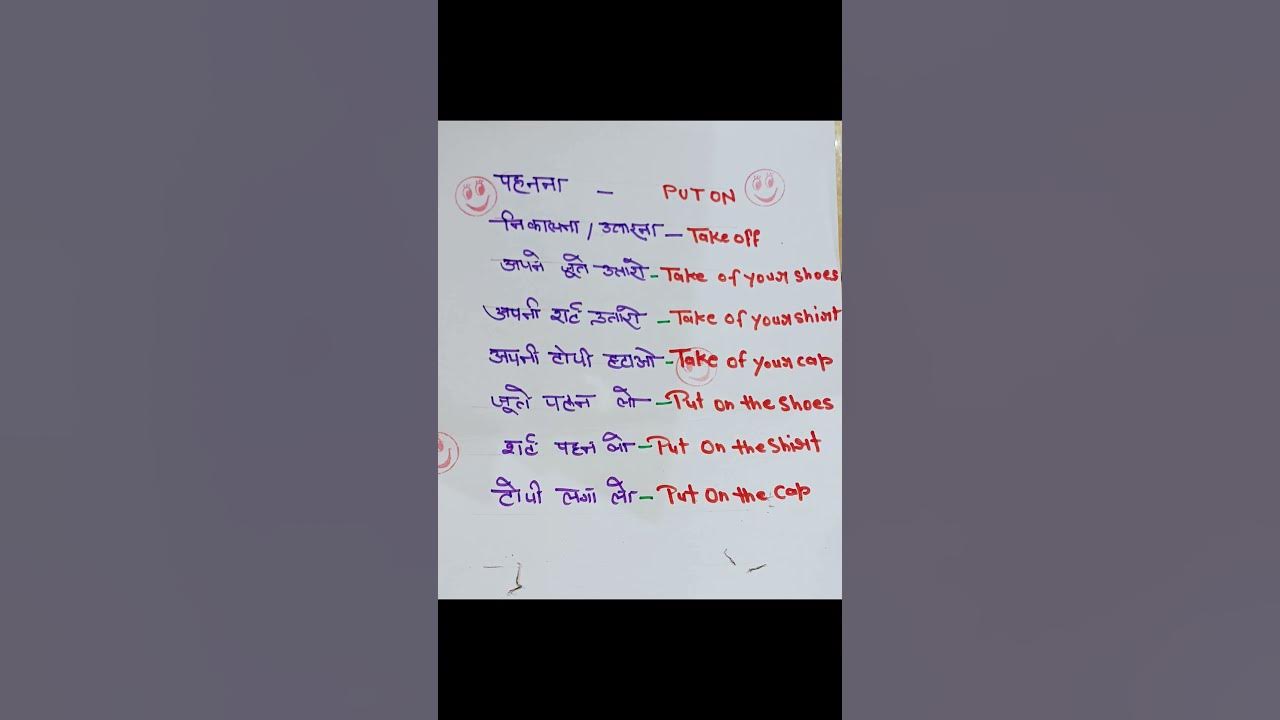 पहनना - PUT ON
निकालना / उतारना - Take off
अपने जूते उतारो - Take of your shoes
अपनी शर्ट उतारो - Take of your shirt
अपनी टोपी हटाओ - Take of your cap
जूते पहन लो - Put on the shoes
शर्ट पहन लो - Put on the shirt
टोपी लगा लो - Put on the cap